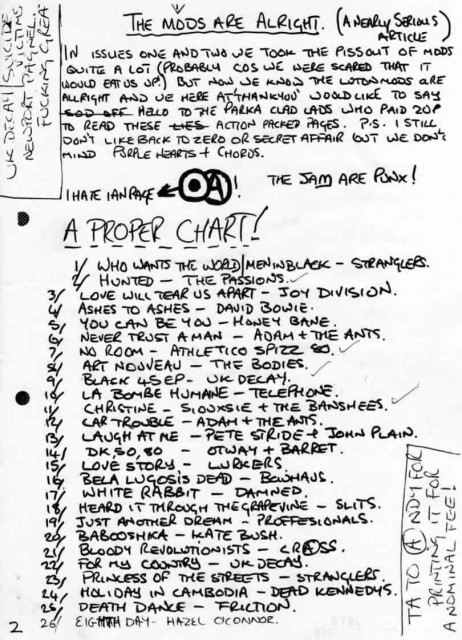 UK DECAY/SUICIDE
VICTIMS
NEWPORT PAGNEL.
FUCKING GREAT
THE MODS ARE ALRIGHT. (A NEARLY SERIOUS
ARTICLE)
IN ISSUES ONE AND TWO WE TOOK THE PISS OUT OF MODS
QUITE A LOT (PROBABLY COS WE WERE SCARED THAT IT
WOULD EAT US UP.) BUT NOW WE KNOW THE LUTON MODS ARE
ALLRIGHT AND WE HERE AT 'THANKYOU' WOULD LIKE TO SAY
SOD OFF HELLO TO THE PARKA CLAD LADS WHO PAID 20P
TO READ THESE LIES ACTION PACKED PAGES. P.S. I STILL
DON'T LIKE BACK TO ZERO OR SECRET AFFAIR BUT WE DON'T
MIND PURPLE HEARTS + CHORDS.
I HATE IAN PAGE A!
THE JAM ARE PUNX!
A PROPER CHART!
1/ WHO WANTS THE WORLD/MENINBLACK - STRANGLERS.
2/ HUNTED - THE PASSIONS.
3/ LOVE WILL TEAR US APART - JOY DIVISION.
4/ ASHES TO ASHES - DAVID BOWIE.
5/ YOU CAN BE YOU - HONEY BANE.
6/ NEVER TRUST A MAN - ADAM + THE ANTS.
7/ NO ROOM - ATHLETICO SPIZZ 80.
8/ ART NOUVEAU - THE BODIES.
9/ BLACK 45 EP - UK DECAY.
10/ LA BOMBE HUMANE - TELEPHONE.
11/ CHRISTINE - SIOUXSIE + THE BANSHEES.
12/ CAR TROUBLE - ADAM + THE ANTS.
13/ LAUGH AT ME - PETE STRIDE + JOHN PLAIN.
14/ DK, 50, 80 - OTWAY + BARRET.
15/ LOVE STORY - LURKERS.
16/ BELA LUGOSIS DEAD - BOWHAUS.
17/ WHITE RABBIT - DAMNED.
18/ HEARD IT THROUGH THE GRAPEVINE - SLITS.
19/ JUST ANOTHER DREAM - PROFFESIONALS.
20/ BABOOSHKA - KATE BUSH.
21/ BLOODY REVOLUTIONISTS - CRASS.
22/ FOR MY COUNTRY - UK DECAY.
23/ PRINCESS OF THE STREETS - STRANGLERS.
24/ HOLIDAY IN CAMBODIA - DEAD KENNEDYS.
25/ DEATH DANCE - FRICTION.
26/ EIGHTH DAY - HAZEL O'CONNOR.
TA TO ANDY FOR
PRINTING IT FOR
A NOMINAL FEE!
2